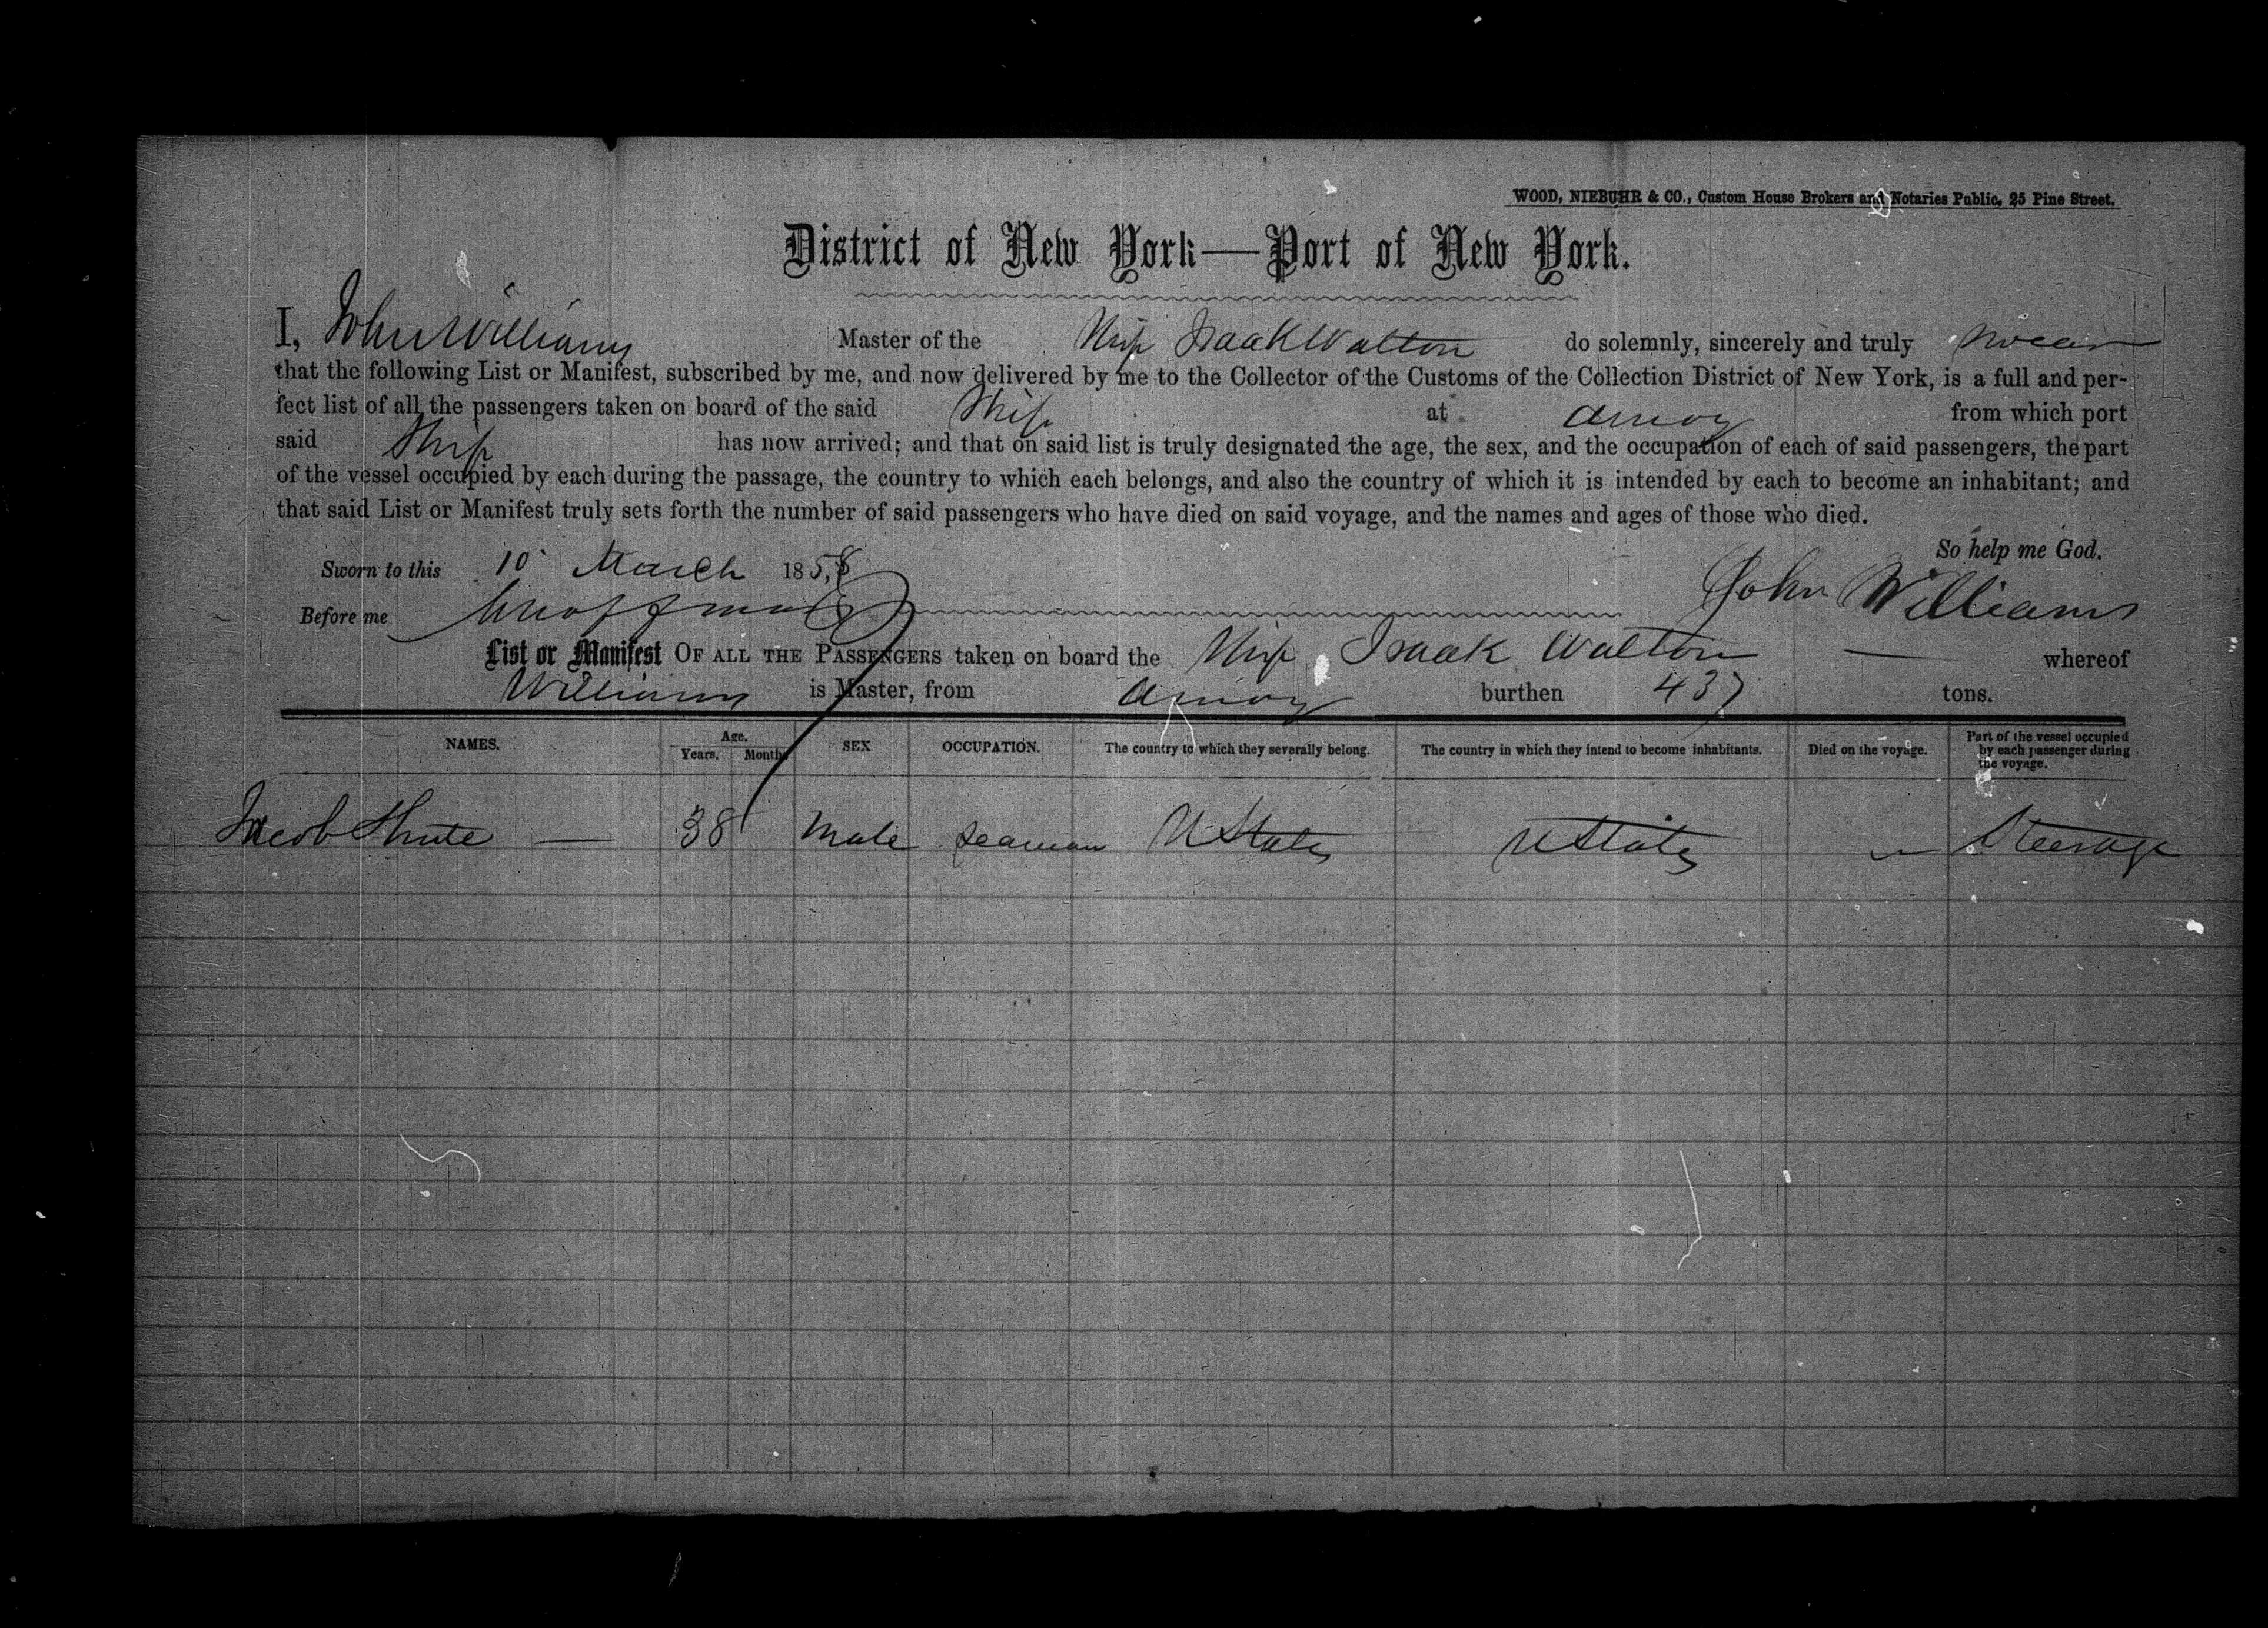 WOOD, NIEBUHR & CO., Custom House Brokers and Notaries Public, 25 Pine Street.
District of New York—Port of New York.
I, John Williams Master of the Ship Isaak Walton do solemnly, sincerely and truly swear
that the following List or Manifest, subscribed by me, and now delivered by me to the Collector of the Customs of the Collection District of New York, is a full and per-
fect list of all the passengers taken on board of the said Ship at Amoy from which port
said Ship has now arrived; and that on said list is truly designated the age, the sex, and the occupation of each of said passengers, the part
of the vessel occupied by each during the passage, the country to which each belongs, and also the country of which it is intended by each to become an inhabitant; and
that said List or Manifest truly sets forth the number of said passengers who have died on said voyage, and the names and ages of those who died.
So help me God.
Sworn to this 10 March 1858
John Williams
Before me
List or Manifest OF ALL THE PASSENGERS taken on board the Ship Isaak Walton — whereof
Williams is Master, from Amoy burthen 437 tons.
NAMES. Age. Years. Months SEX OCCUPATION. The country to which they severally belong. The country in which they intend to become inhabitants. Died on the voyage. Part of the vessel occupied by each passenger during the voyage.
Jacob Shute — 38 Male Seaman U States U States — Steerage